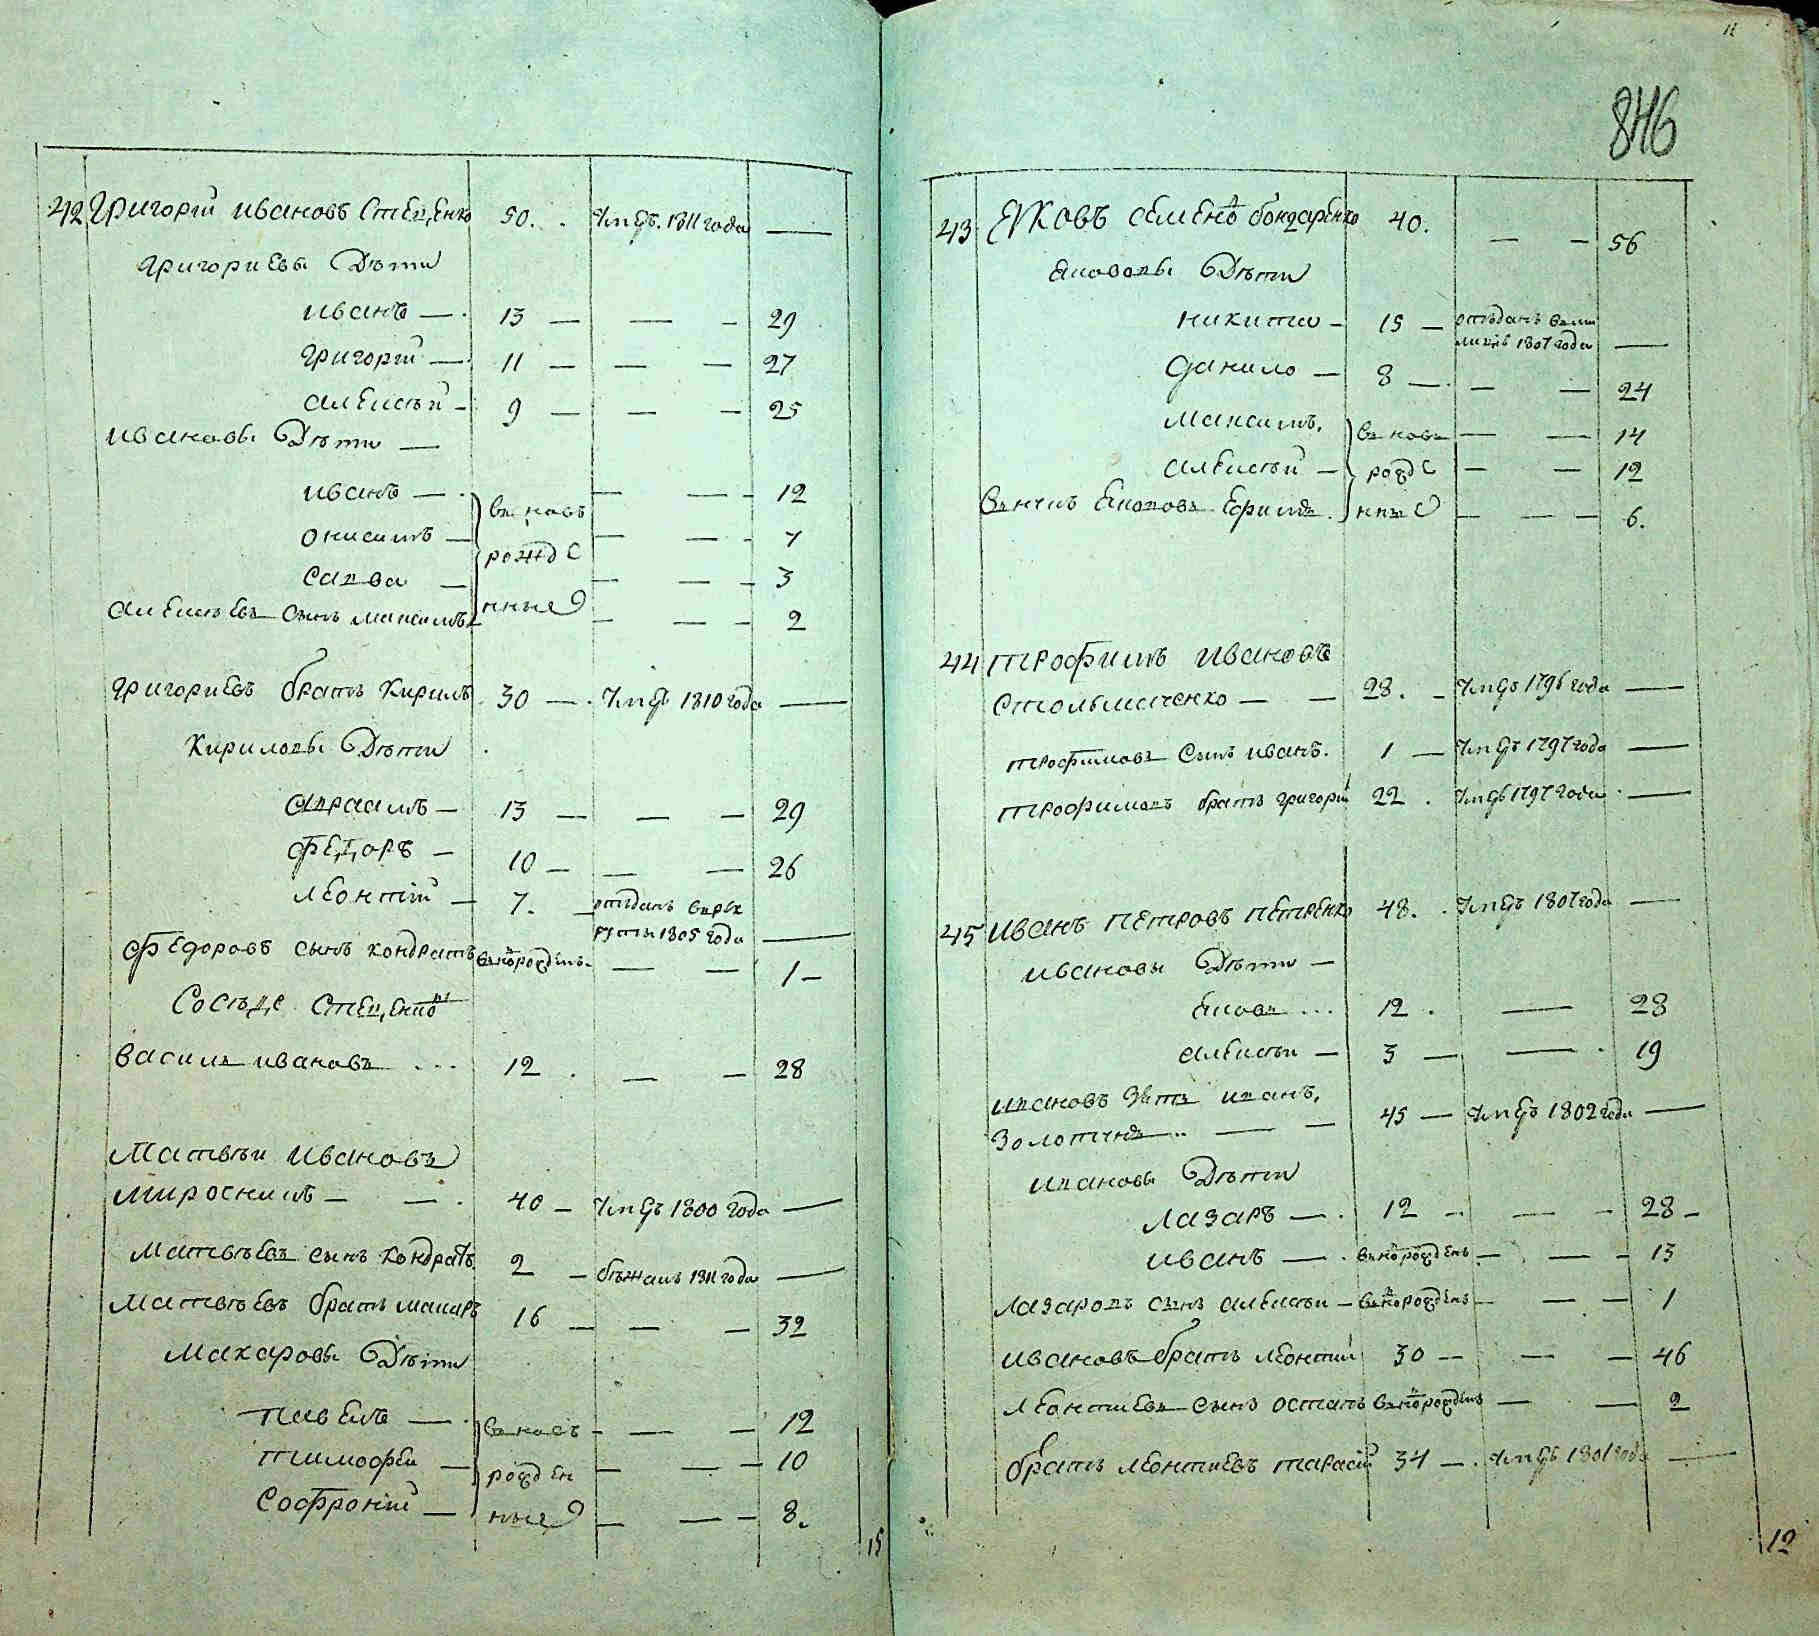 42 Григорій Ивановъ Стеценко 50. умеръ. 1811 года —
Григориевы Дѣти
Иванъ — 13 — — — 29
Григорій — 11 — — — 27
Алексѣй — 9 — — — 25
Ивановы Дѣти —
Иванъ — вновь — — 12
Онисимъ — — — 7
рожде
Савва — — — 3
Алексѣевъ сынъ Максимъ нные — — 2
Григориевъ братъ Кирилъ 30 — умеръ 1810 года —
Кириловы Дѣти
Авраамъ — 13 — — — 29
Федоръ — 10 — — — 26
Леонтій — 7. — отданъ в рек
руты 1805 года —
Федоровъ сынъ Кондратъ вновь рожденъ — — 1 —
Василь Ивановъ 12 . — — 28
Матвѣй Ивановъ
— — 40 — умеръ 1800 года —
Матвѣевъ сынъ Кондратъ 2 — бѣжалъ 1811 года —
Матвѣевъ братъ Макаръ 16 — — — 32
Макаровы Дѣти
Павелъ — вновь — — 12
Тимофей — рожден — — 10
Софроній — ные — — 8.
15
846
43 Яковъ Семеновъ Бондаренко 40. — — 56
Якововы Дѣти
Никита — 15 — отданъ в ми
лицію 1807 года —
Данило — 8 — — — 24
Максимъ, вновь — — 14
Алексѣй — рожде — — 12
Внукъ Яковов Ефимъ. нные — — 6.
44 Трофимъ Ивановъ
— — 28. — умеръ 1796 года —
Трофимовъ сынъ Иванъ. 1 — умеръ 1797 года —
Трофимовъ братъ Григорій 22 . умеръ 1797 года —
45 Иванъ Петровъ Петренко 48. . умеръ 1807 года —
Ивановы Дѣти —
Яковъ 12 . — 28
Алексѣй — 3 — — 19
Ивановъ Зять Иванъ,
— — 45 — умеръ 1802 года —
Ивановы Дѣти
Лазаръ — . 12 — — — 28 —
Иванъ — . вновь рожденъ — — — 13
Лазаровъ сынъ Алексѣй — вновь рожденъ — — — 1
Ивановъ братъ Леонтій 30 — — — 46
Леонтиевъ сынъ Остапъ вновь рожденъ — — 2
Братъ Леонтиевъ Тарасій 34 — . умеръ 1801 года —
12